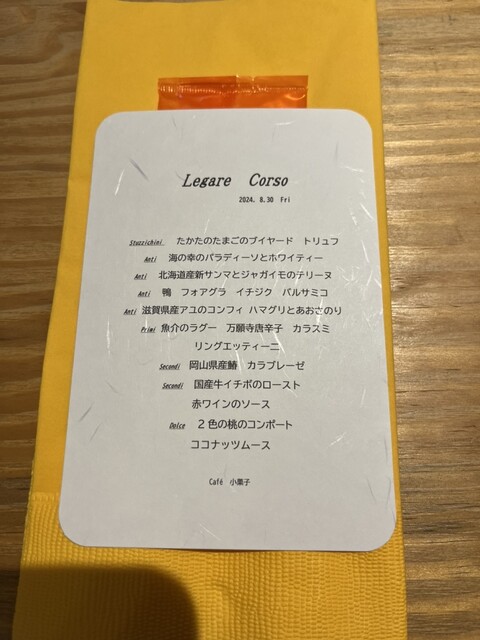 Legare Corso
2024. 8.30 Fri
Stuzzichini たかたのたまごのブイヤード トリュフ
Anti 海の幸のパラディーソとホワイティー
Anti 北海道産新サンマとジャガイモのテリーヌ
Anti 鴨 フォアグラ イチジク バルサミコ
Anti 滋賀県産アユのコンフィ ハマグリとあおさのり
Primi 魚介のラグー 万願寺唐辛子 カラスミ
リングエッティーニ
Secondi 岡山県産鰆 カラブレーゼ
Secondi 国産牛イチボのロースト
赤ワインのソース
Dolce 2色の桃のコンポート
ココナッツムース
Café 小菓子